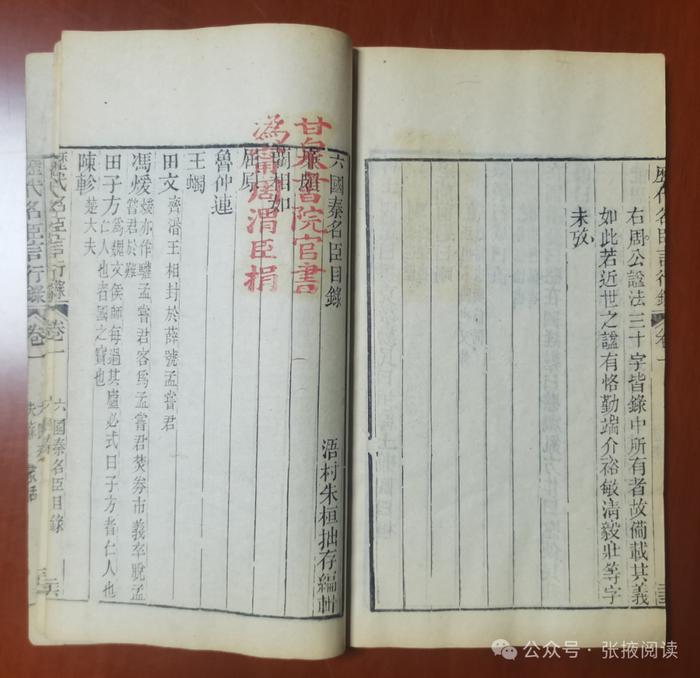 右周公諡法三十字皆錄中所有者故備載其義
如此若近世之諡有恪勤端介裕敏清毅壯等字
未攷
歷代名臣言行錄 卷一
六國秦名臣目錄
浯村朱桓拙存編輯
藺相如
屈原
魯仲連
王蠋
田文 齊湣王相封於薛號孟嘗君
馮煖 煖亦作驩孟嘗君客爲孟嘗君焚券市義卒脫孟嘗君於難
田子方 爲魏文侯師每過其廬必式曰子方者仁人也仁人也者國之寶也
陳軫 楚大夫
甘泉書院官書
渭臣捐
歷代名臣言行錄 卷一 六國秦名臣目錄
歷代名臣言行錄 卷一
公众号·张掖阅读